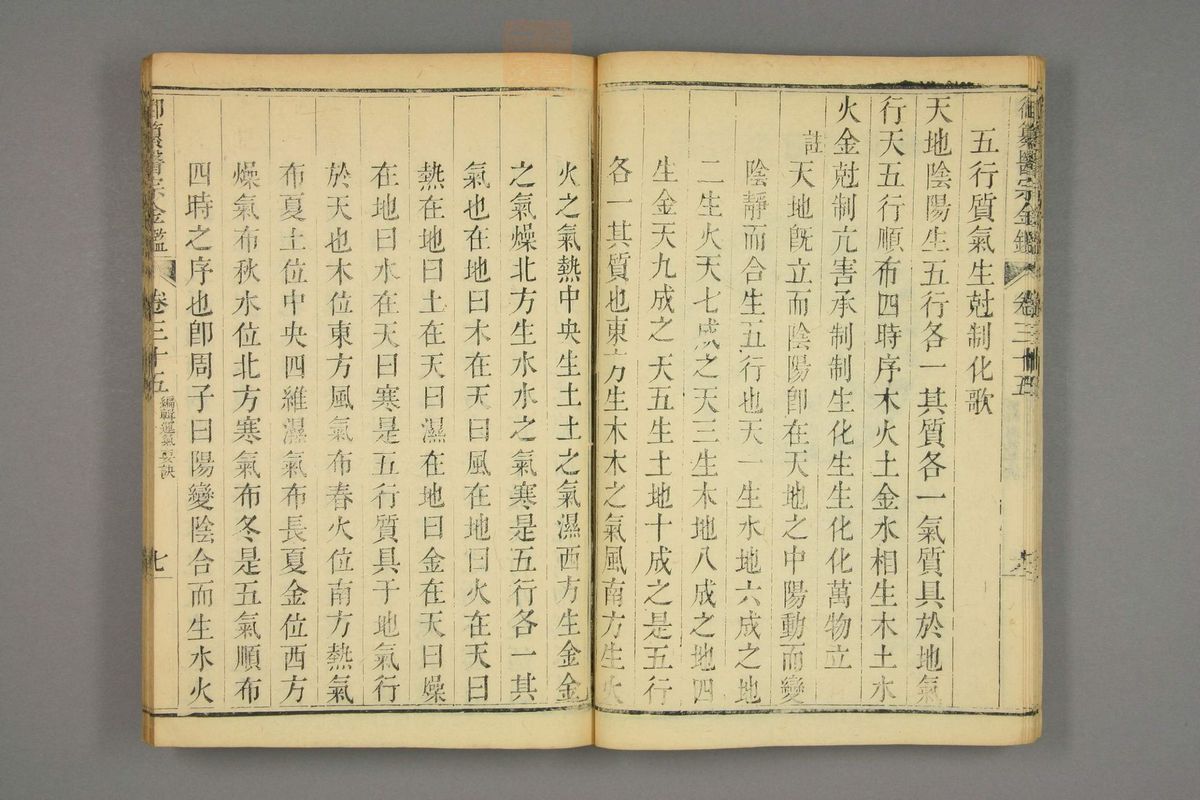 御纂醫宗金鑑
五行質氣生尅制化歌
天地陰陽生五行各一其質各一氣質具於地氣
行天五行順布四時序木火土金水相生木土水
火金尅制亢害承制制生化生生化化萬物立
註天地旣立而陰陽卽在天地之中陽動而變
陰靜而合生五行也天一生水地六成之地
二生火天七成之天三生木地八成之地四
生金天九成之天五生土地十成之是五行
各一其質也東方生木木之氣風南方生火
火之氣熱中央生土土之氣濕西方生金金
之氣燥北方生水水之氣寒是五行各一其
氣也在地曰木在天曰風在地曰火在天曰
熱在地曰土在天曰濕在地曰金在天曰燥
在地曰水在天曰寒是五行質具于地氣行
於天也木位東方風氣布春火位南方熱氣
布夏土位中央四維濕氣布長夏金位西方
燥氣布秋水位北方寒氣布冬是五氣順布
四時之序也卽周子曰陽變陰合而生水火
御纂醫宗金鑑 卷三十五 編輯運氣要訣 七